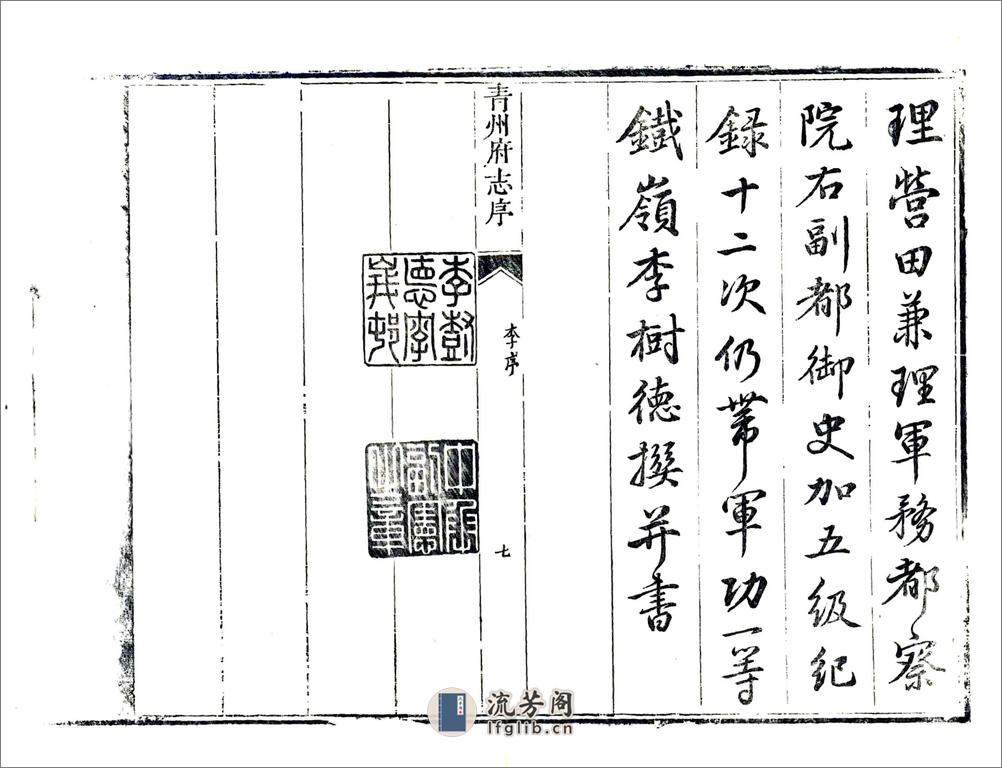 理營田兼理軍務都察
院右副都御史加五級紀
錄十二次仍帶軍功一等
鐵嶺李樹德撰并書
青州府志序
李序
七
李樹
德字
流芳阁
lfglib.cn